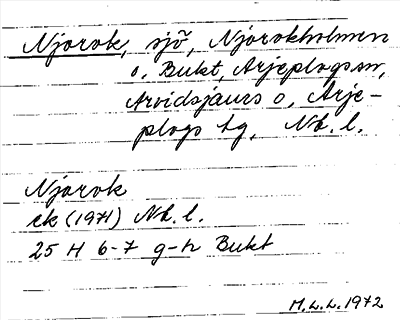 Njarok, sjö, Njarokholmen
o, Bukt, Arjeplogs sn,
Arvidsjaurs o, Arje-
plogs tg, Nb. l.
Njarok
ek (1971) Nb. l.
25 H 6-7 g-h Bukt
M.L.L. 1972